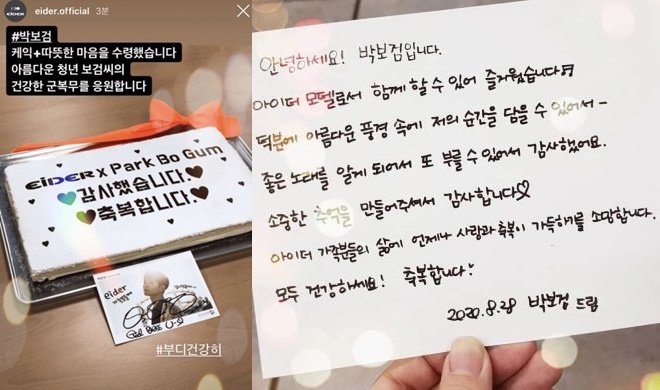 eider.official 3분
#박보검
케익+따뜻한 마음을 수령했습니다
아름다운 청년 보검씨의
건강한 군복무를 응원합니다
EiDER x Park Bo Gum
감사했습니다.
축복합니다.
eider
God Bless U
#부디건강히
안녕하세요! 박보검입니다.
아이더 모델로서 함께 할 수 있어 즐거웠습니다♬
덕분에 아름다운 풍경 속에 저의 순간을 담을 수 있어서 –
좋은 노래를 알게 되어서 또 부를 수 있어서 감사했어요.
소중한 추억을 만들어주셔서 감사합니다♡
아이더 가족분들의 삶에 언제나 사랑과 축복이 가득하기를 소망합니다.
모두 건강하세요! 축복합니다.
2020.8.28 박보검 드림